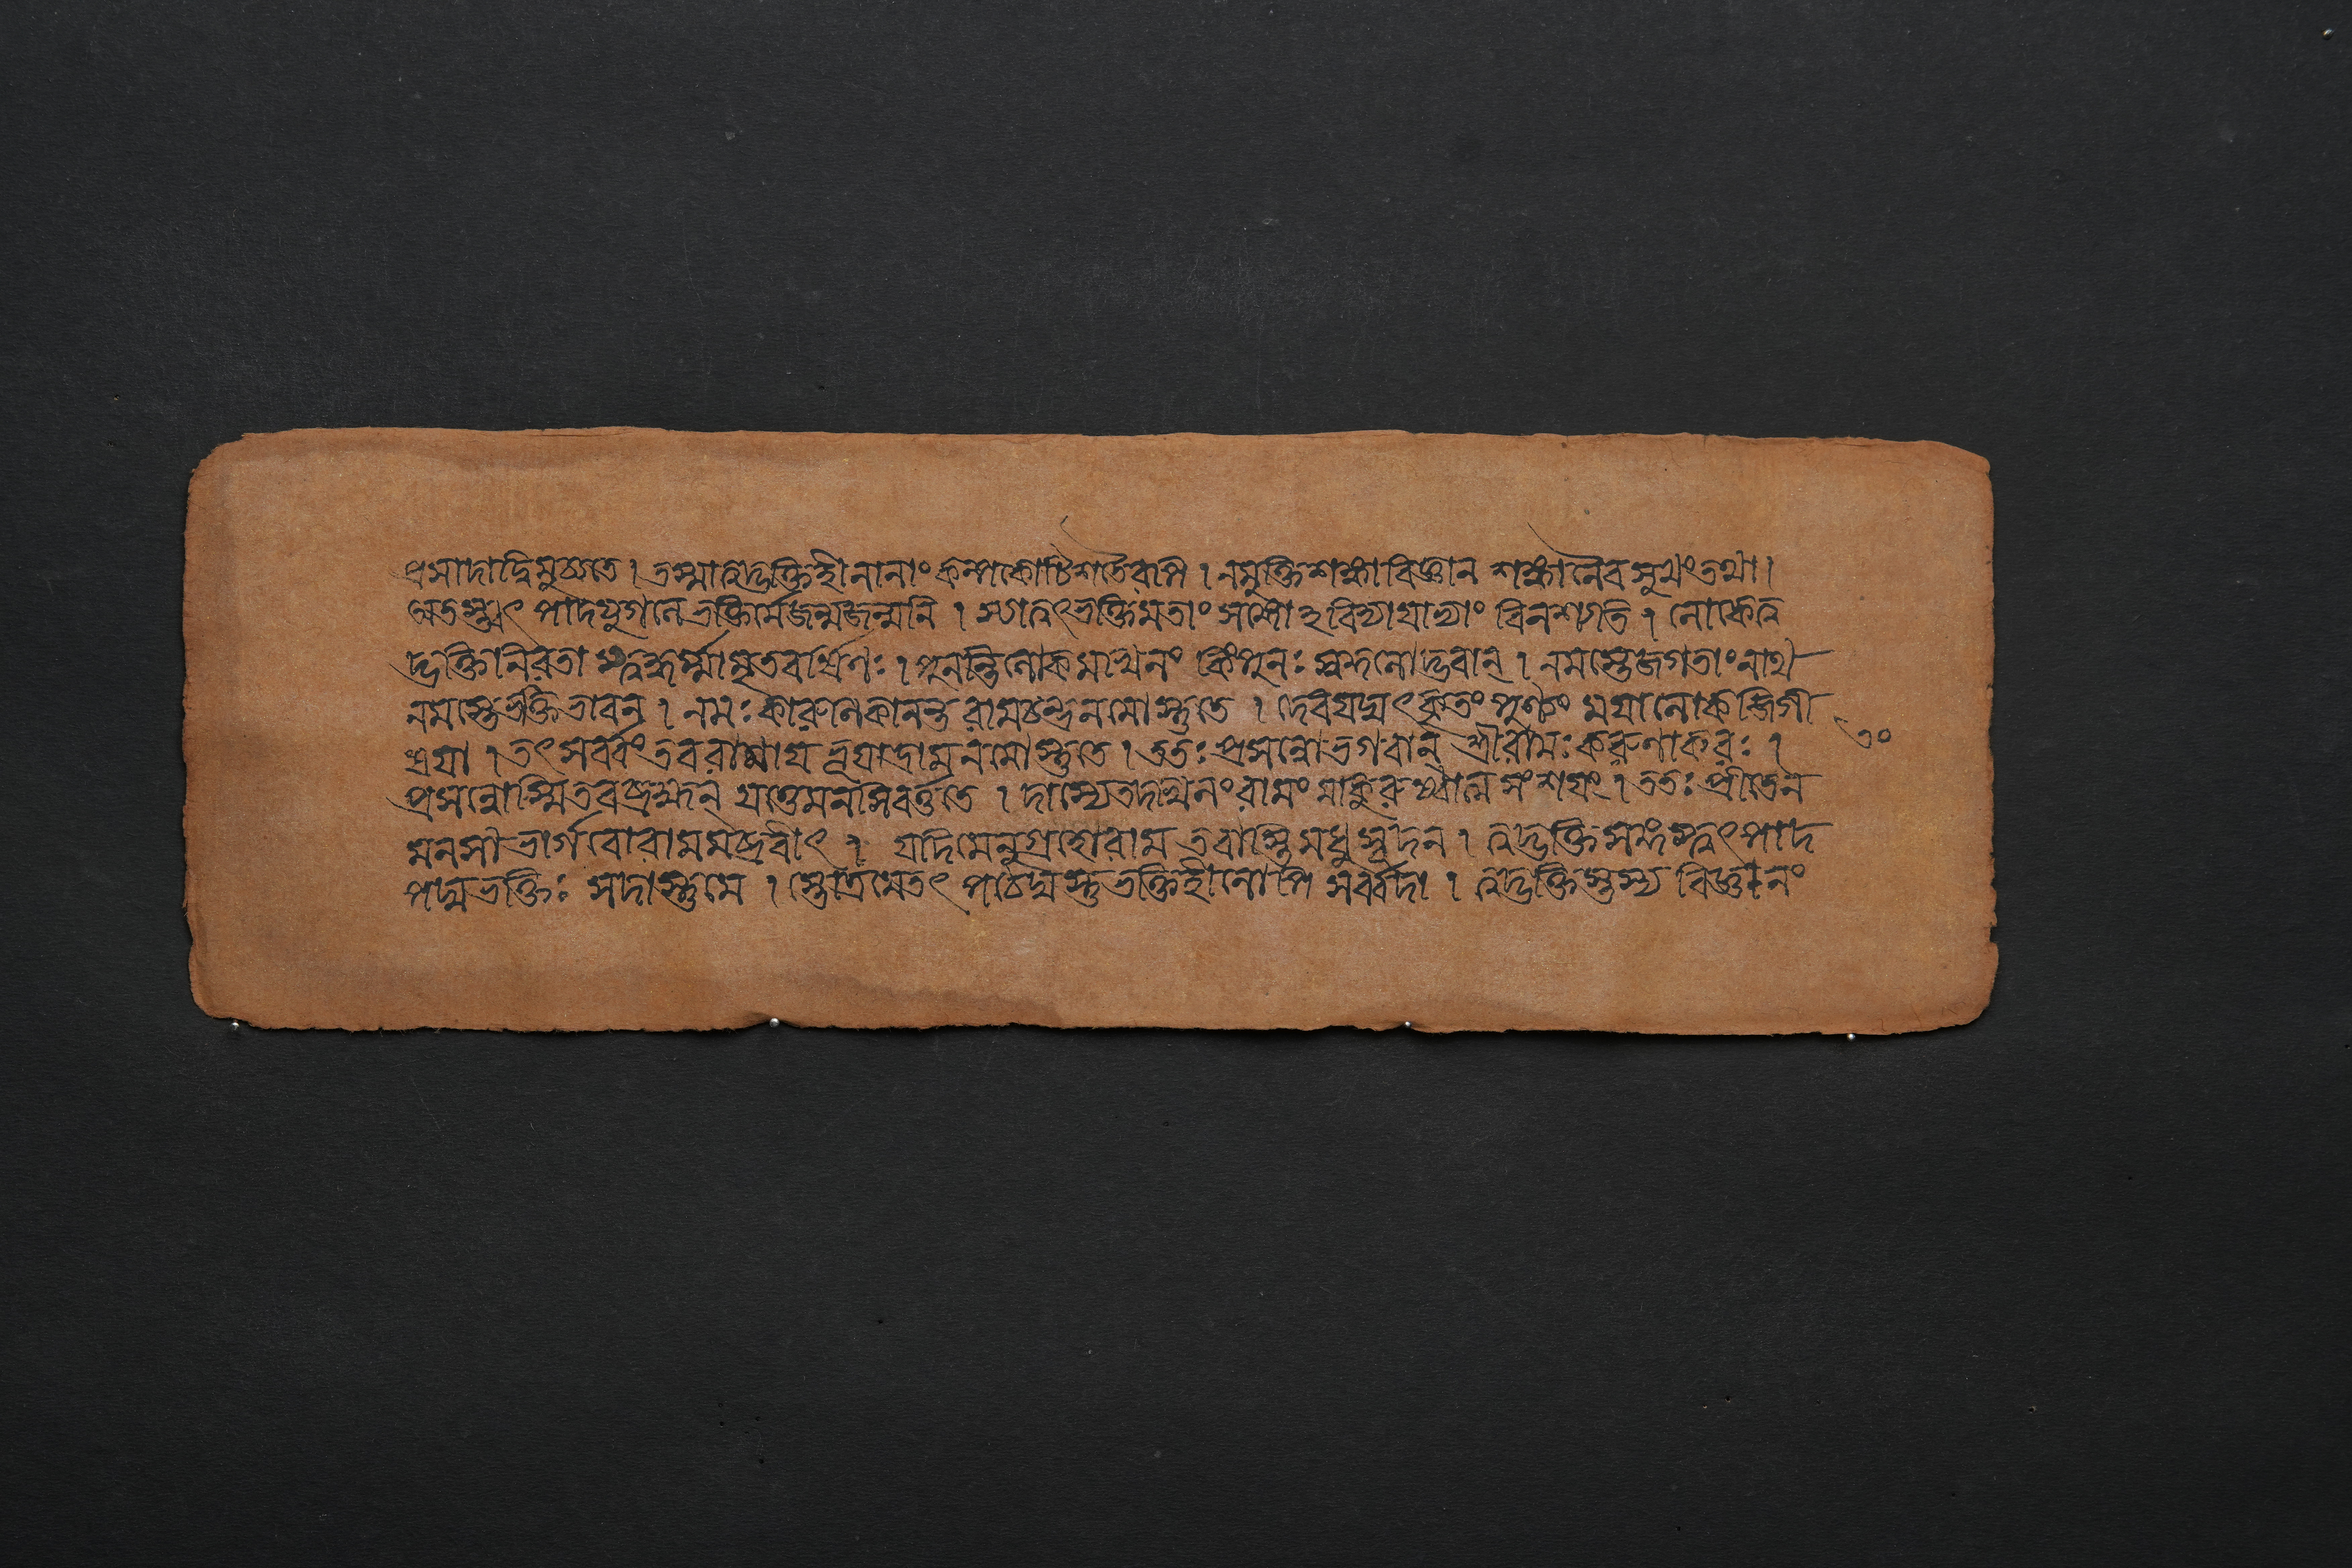 প্রসাদাদ্বিমুচ্যতে । তস্মাত্ত্বদ্ভক্তিহীনানাং কল্পকোটিশতৈরপি । নমুক্তিশঙ্কাবিজ্ঞান শঙ্কানৈবসুখংতথা ।
অতস্ত্বৎ পাদযুগলে ভক্তির্মেজন্মজন্মনি । স্যাত্ত্বৎভক্তিমতাং সঙ্গোঽবিদ্যাযাভ্যাং বিনশ্যতি । লোকেত্ব
দ্ভক্তিনিরতা স্ত্বদ্ধর্ম্মামৃতবর্ষিণঃ । পুনন্তিলোকমখিলং কিংপুনঃ স্বকুলোদ্ভবান্ । নমস্তেজগতাংনাথ
নমস্তেভক্তিভাবন । নমঃ কারুনিকানন্ত রামচন্দ্রনমোস্তুতে । দেবযদ্যৎকৃতং পুণ্যং ময়ালোকজিগী
ষয়া । তৎসর্ব্বংতববাণায় ভূয়াদ্রামনমোস্তুতে । ততঃ প্রসন্নোভগবান্ শ্রীরামঃ করুণাকরঃ ।
প্রসন্নোস্মিতবব্রহ্মন্ যত্তেমনসিবর্ত্ততে । দাস্যেতদখিলংকামং মাকুরুষ্বাত্র সংশয়ং । ততঃ প্রীতেন
মনসাভার্গবোরামমব্রবীৎ । যদিমেনুগ্রহোরাম তবাস্তিমধুসূদন । ত্বদ্ভক্তিসঙ্গস্ত্বৎপাদ
পদ্মভক্তিঃ সদাস্তুমে । স্তোত্রমেতৎ পঠেদ্যস্তুভক্তিহীনোপি সর্ব্বদা । ত্বদ্ভক্তিস্তস্য বিজ্ঞানং
৩০